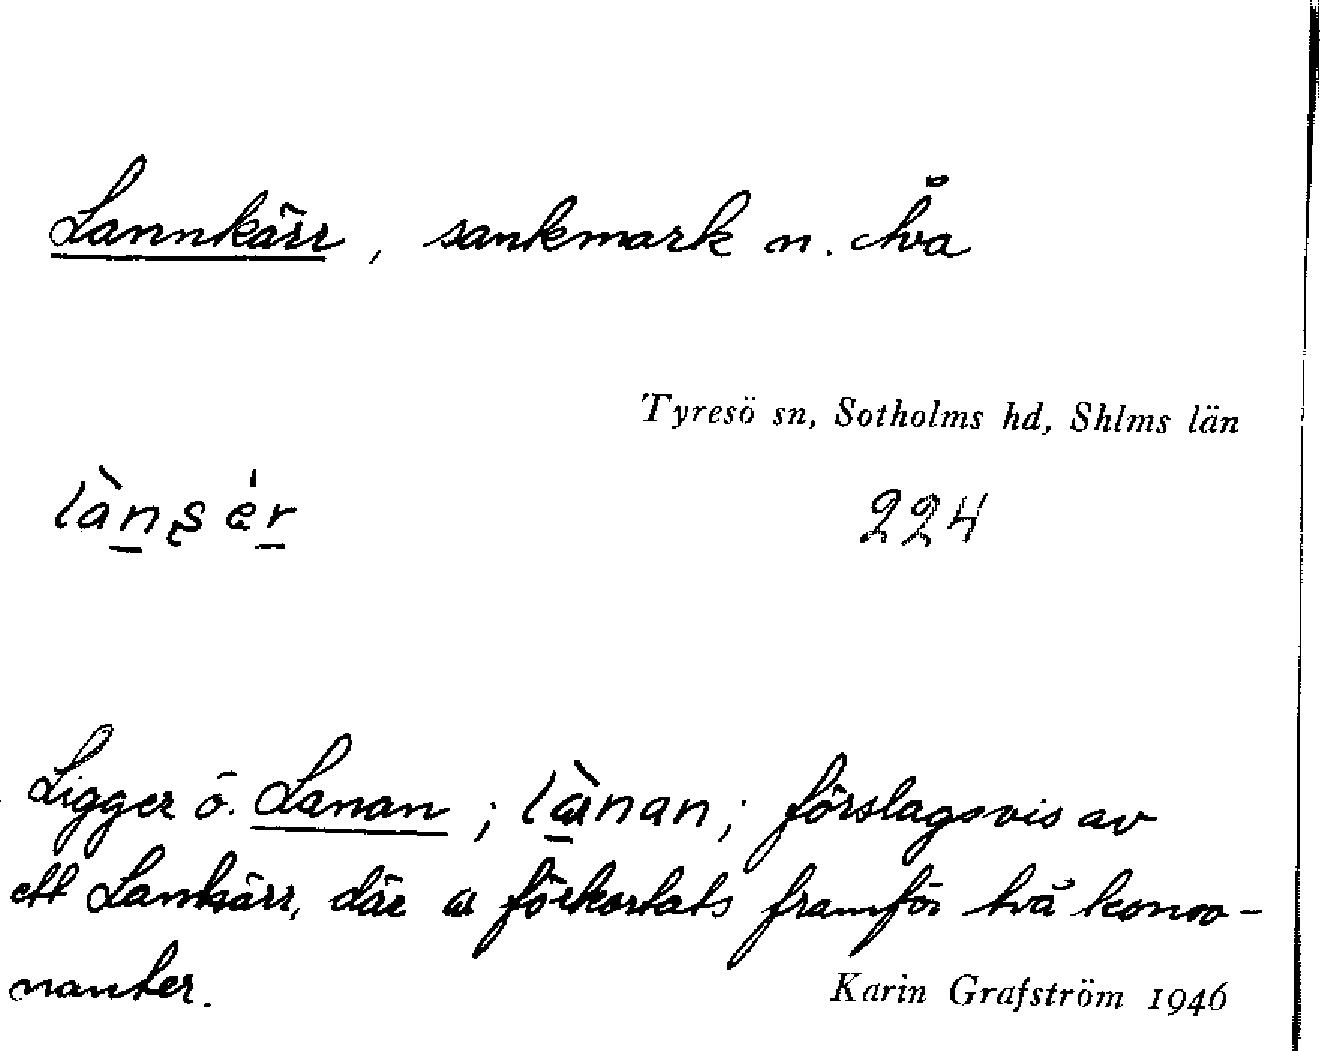 Lannkärr, sankmark n. Åva
Tyresö sn, Sotholms hd, Shlms län
224
Ligger ö. Lanan; förslagsvis av
ett Lankärr, där a förkortats framför två konso-
nanter.
Karin Grafström 1946